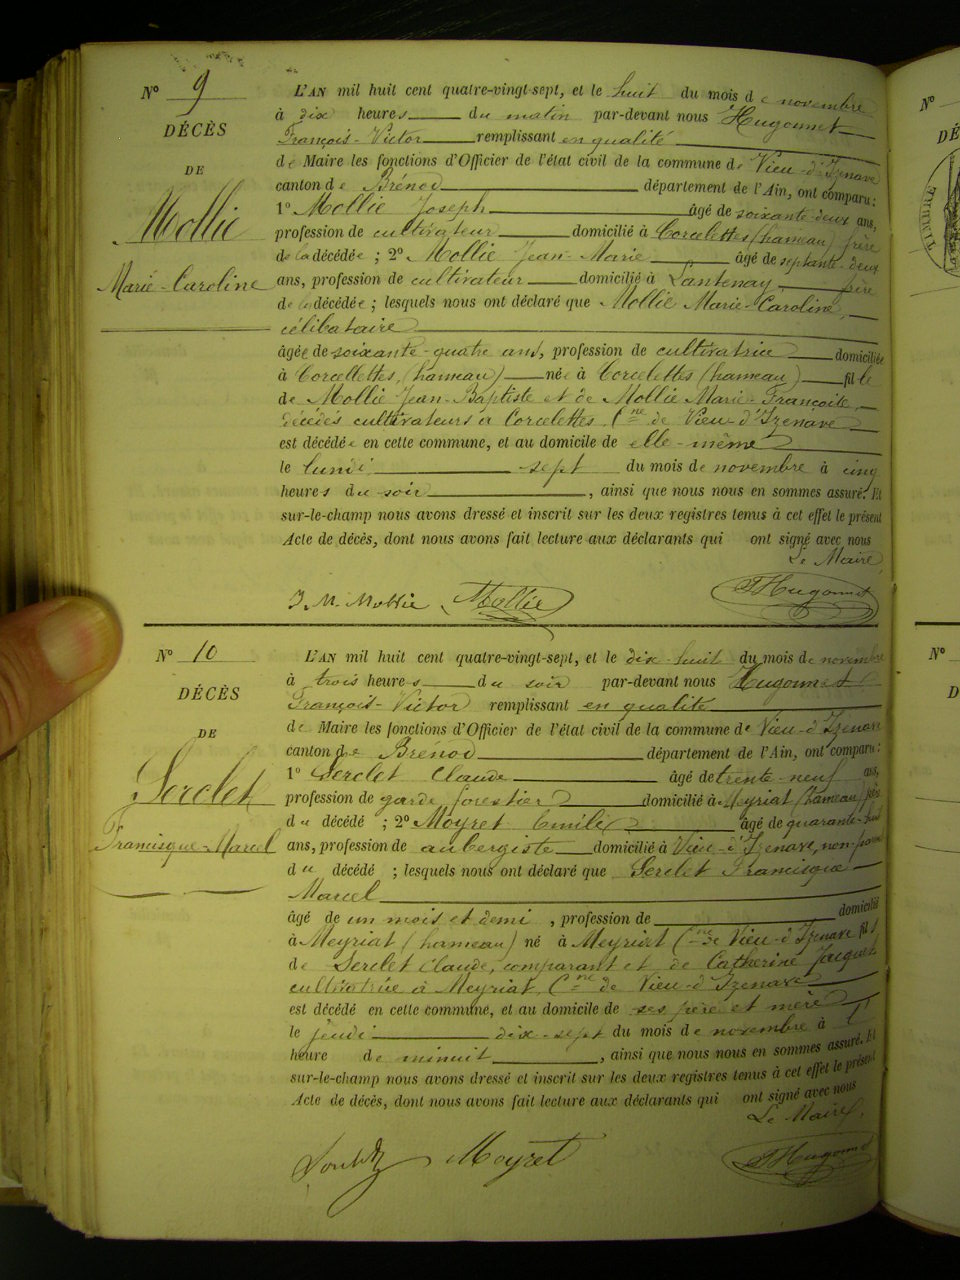 N° 9
DÉCÈS
DE
Mollie
Marie-Caroline
L'AN mil huit cent quatre-vingt-sept, et le huit du mois de novembre
à dix heures du matin par-devant nous Hugonnet
François-Victor remplissant en qualité
de Maire les fonctions d'Officier de l'état civil de la commune de Vieu-d'Izenave
canton de Brénod département de l'Ain, ont comparu :
1° Mollie Joseph âgé de soixante-deux ans,
profession de cultivateur domicilié à Corcelettes (hameau) frère
de la décédée ; 2° Mollie Jean-Marie âgé de septante-deux
ans, profession de cultivateur domicilié à Lantenay, frère
de la décédée ; lesquels nous ont déclaré que Mollie Marie-Caroline,
célibataire
âgée de soixante-quatre ans, profession de cultivatrice domiciliée
à Corcellettes, (hameau) née à Corcelettes (hameau) fille
de Mollie Jean-Baptiste et de Mollie Marie-Françoise,
décédés cultivateurs à Corcelettes, Cne de Vieu-d'Izenave
est décédée en cette commune, et au domicile de elle-même
le lundi sept du mois de novembre à cinq
heures du soir, ainsi que nous nous en sommes assuré. Et
sur-le-champ nous avons dressé et inscrit sur les deux registres tenus à cet effet le présent
Acte de décès, dont nous avons fait lecture aux déclarants qui ont signé avec nous
Le Maire,
J M Mollie Mollie FHugonnet
N° 10
DÉCÈS
DE
Serclet
Francisque-Marcel
L'AN mil huit cent quatre-vingt-sept, et le dix-huit du mois de novembre
à trois heures du soir par-devant nous Hugonnet
François-Victor remplissant en qualité
de Maire les fonctions d'Officier de l'état civil de la commune de Vieu-d'Izenave
canton de Brenod département de l'Ain, ont comparu :
1° Serclet Claude âgé de trente-neuf ans,
profession de garde forestier domicilié à Meyriat (hameau) père
du décédé ; 2° Moyret Emile âgé de quarante-huit
ans, profession de aubergiste domicilié à Vieu-d'Izenave, non-parent
du décédé ; lesquels nous ont déclaré que Serclet Francisque
Marcel
âgé de un mois et demi, profession de domicilié
à Meyriat (hameau) né à Meyriat Cne de Vieu-d'Izenave fils
de Serclet Claude, comparant et de Catherine Jacquet
cultivatrice à Meyriat, Cne de Vieu-d'Izenave
est décédé en cette commune, et au domicile de ses père et mère
le jeudi dix-sept du mois de novembre à l'
heure de minuit, ainsi que nous nous en sommes assuré. Et
sur-le-champ nous avons dressé et inscrit sur les deux registres tenus à cet effet le présent
Acte de décès, dont nous avons fait lecture aux déclarants qui ont signé avec nous
Le Maire,
Moyret FHugonnet
N°
DÉ
TIMBRE
N°
D